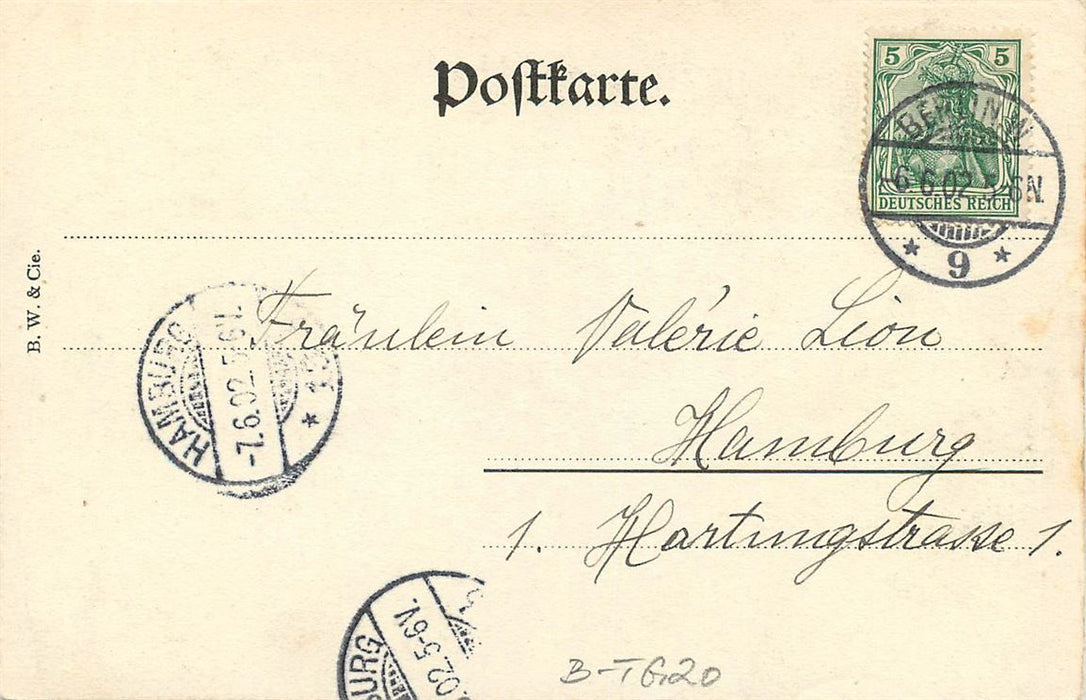 Postkarte.
5 5
DEUTSCHES REICH
BERLIN W.
-6.6.02 5-6N.
* 9 *
B. W. & Cie.
Fräulein Valérie Lion
Hamburg
1. Hartungstrasse 1.
HAMBURG
-7.6.02.5-6V.
* 13
BURG
02.5-6V.
B-TG20